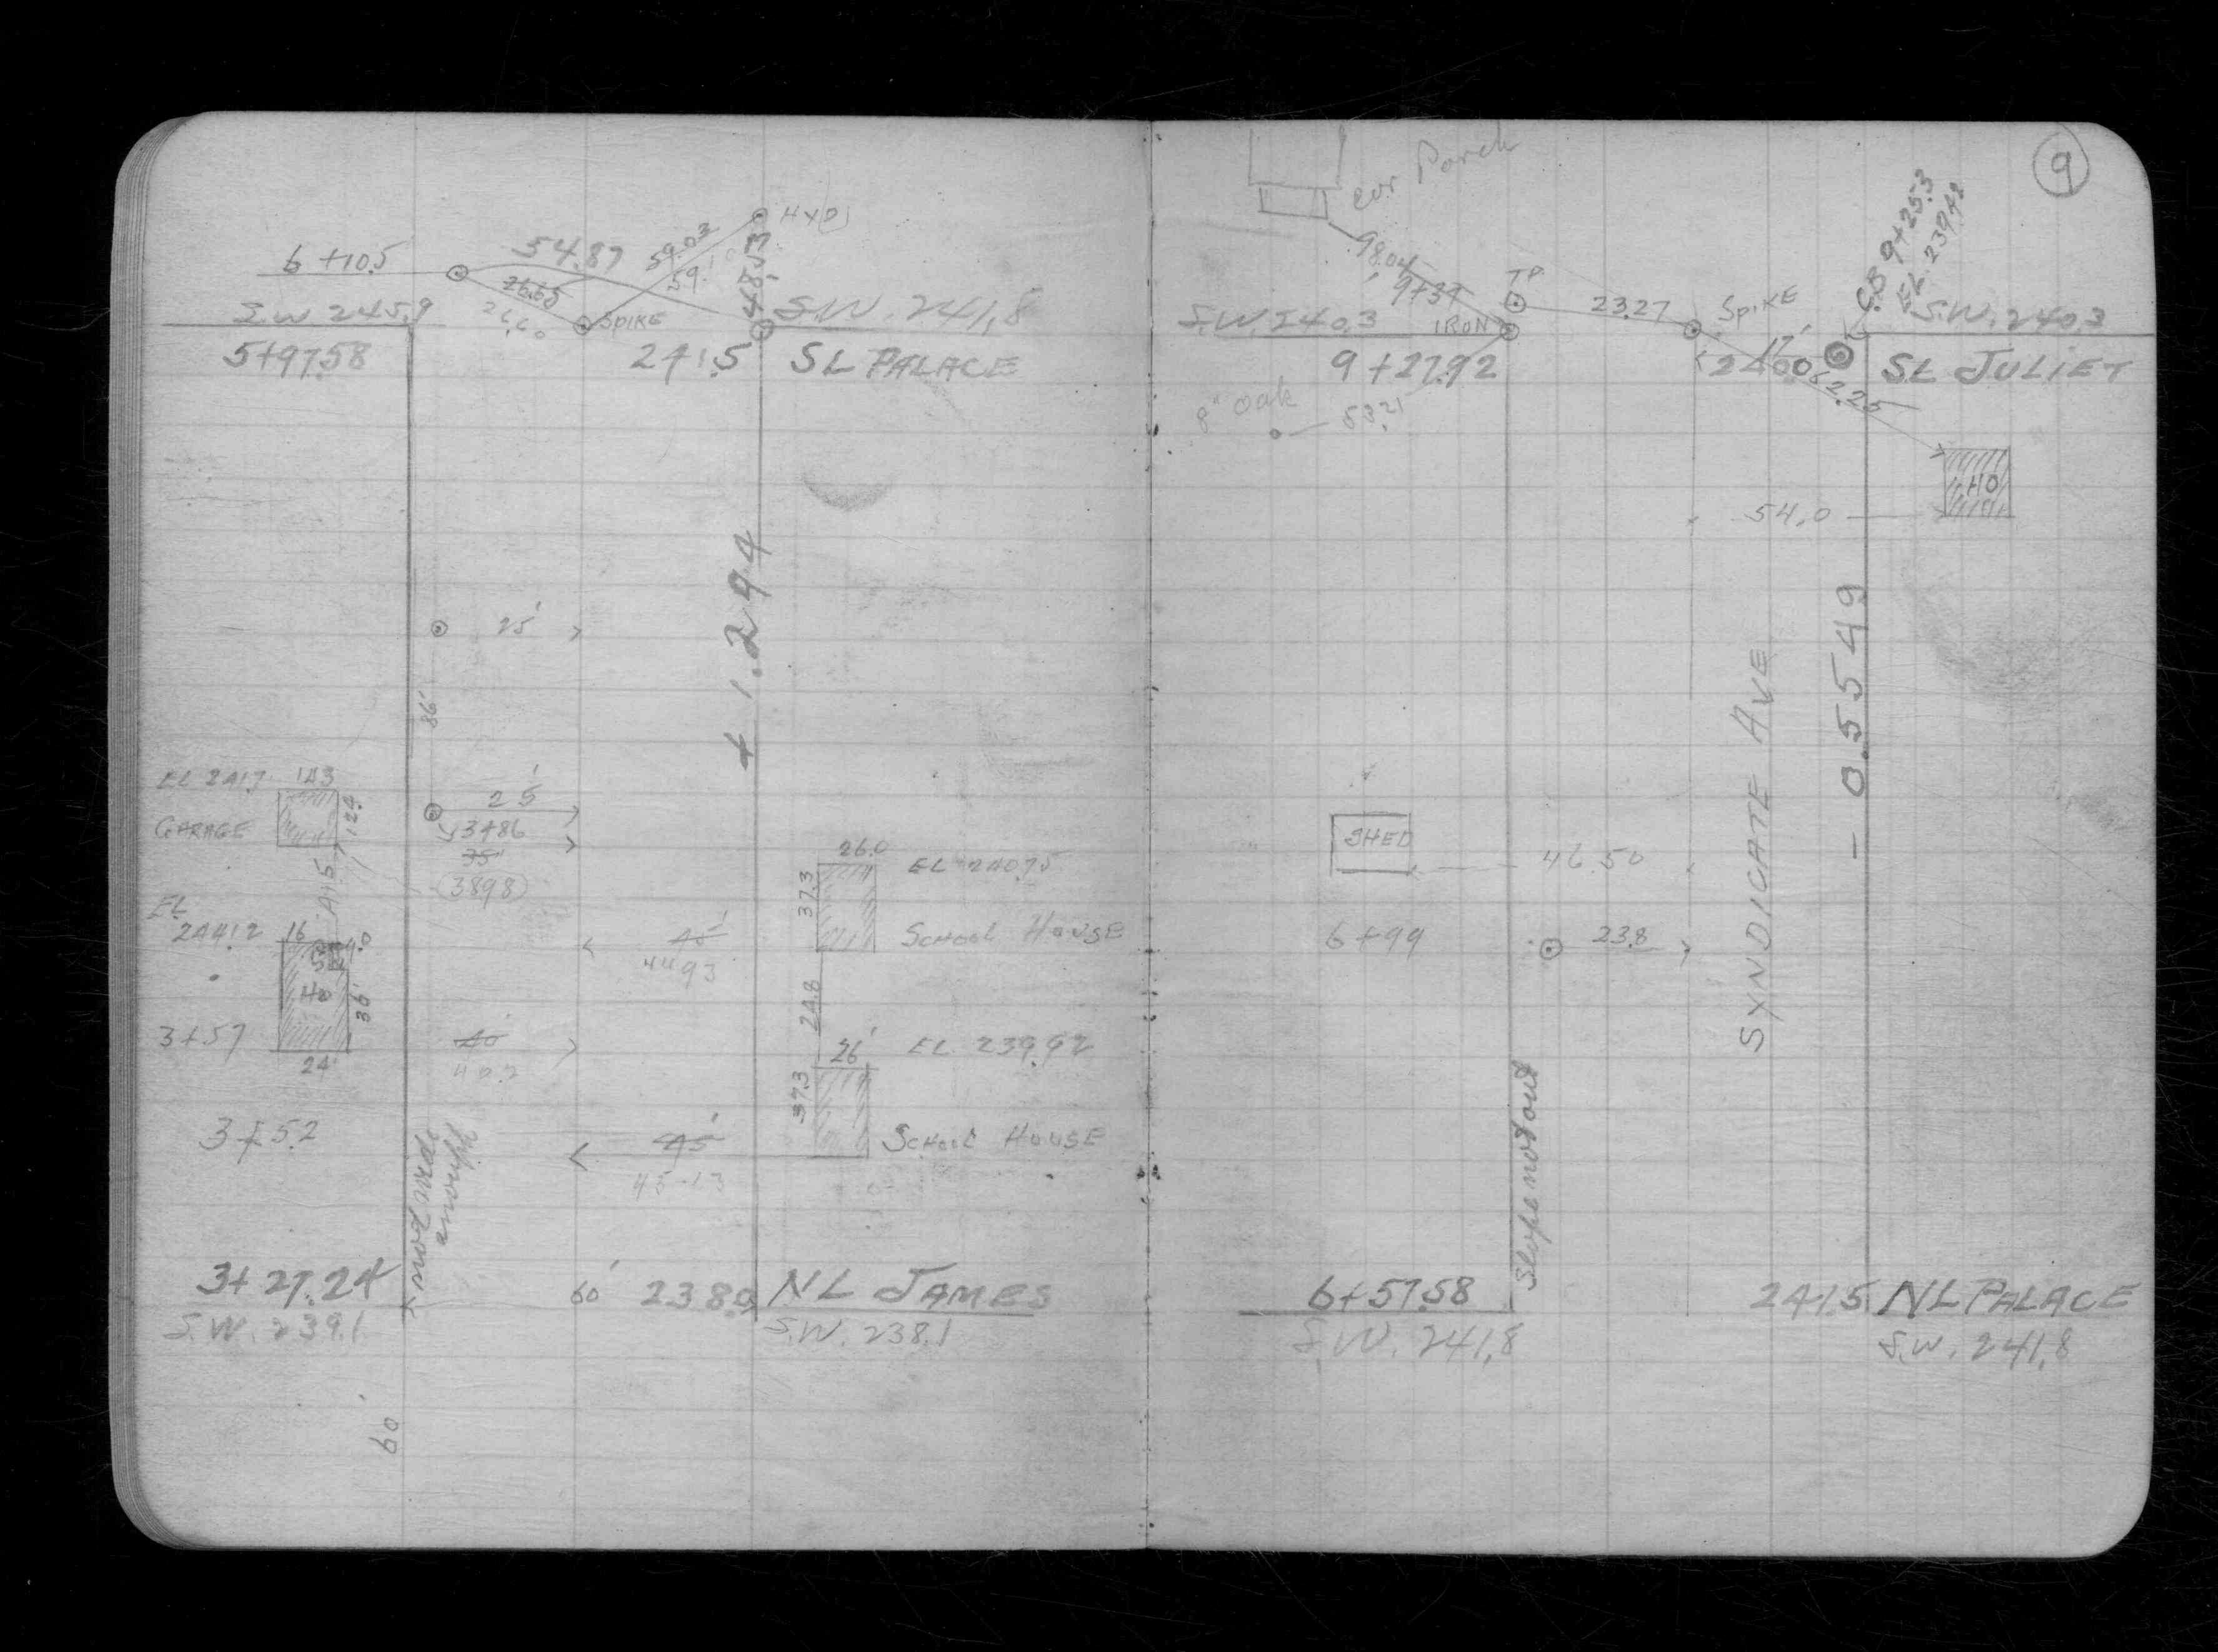 HYD
6 + 10.5
54.87
59.03
59.1
48.53
26.65
26.60
SPIKE
S.W 245.9
S.W. 241.8
5+97.58
241.5
SL PALACE
25'
86'
+ 1.294
EL 241.7
14.3
GARAGE
12.9
25'
3+86
35'
(38.98)
41.5
26.0
EL 240.75
37.3
SCHOOL HOUSE
EL
244.12
16
4.0
45'
44.93
Ho
36'
24.8
3+57
24'
40'
40.2
26'
EL 239.92
37.3
3+52
45'
45.13
SCHOOL HOUSE
not wide
enough
3+27.24
60'
238.0
NL JAMES
S.W. 239.1
S.W. 238.1
60'
9
Cor Porch
98.04
9+37
T.P.
IRON
23.27
SPIKE
C.B 9+25.3
EL. 239.48
S.W. 240.3
S.W. 240.3
9+27.92
17'
240.0
SL JULIET
62.25
8" Oak
58.21
HO
54.0
- 0.5549
SYNDICATE AVE
SHED
46.50
6+99
23.8
Slope not out
6+57.58
241.5
NL PALACE
S.W. 241.8
S.W. 241.8